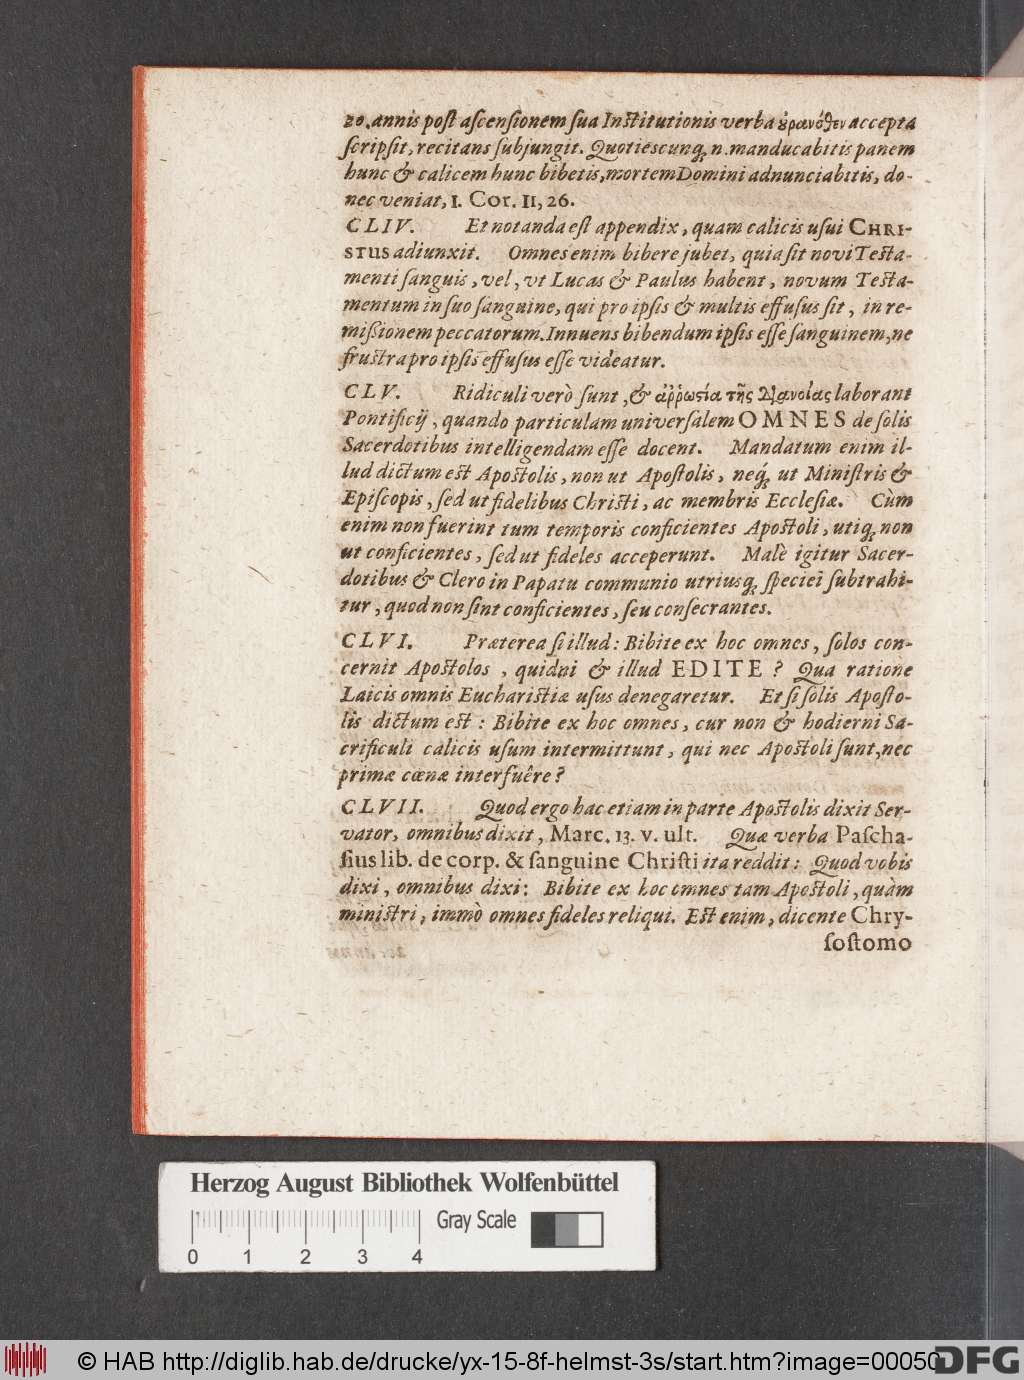 20. annis post ascensionem sua Institutionis verba ȣ̓ρανόθεν accepta
scripsit, recitans subjungit. Quotiescunq; n. manducabitis panem
hunc & calicem hunc bibetis, mortem Domini adnunciabitis, do-
nec veniat, I. Cor. II, 26.
CLIV. Et notanda est appendix, quam calicis usui CHRI-
STUS adiunxit. Omnes enim bibere jubet, quia sit novi Testa-
menti sanguis, vel, vt Lucas & Paulus habent, novum Testa-
mentum in suo sanguine, qui pro ipsis & multis effusus sit, in re-
mißionem peccatorum. Innuens bibendum ipsis esse sanguinem, ne
frustra pro ipsis effusus esse videatur.
CLV. Ridiculi verò sunt, & ἀῤῥωσία τῆς διανοίας laborant
Pontificij, quando particulam universalem OMNES de solis
Sacerdotibus intelligendam esse docent. Mandatum enim il-
lud dictum est Apostolis, non ut Apostolis, neq́; ut Ministris &
Episcopis, sed ut fidelibus Christi, ac membris Ecclesiæ. Cùm
enim non fuerint tum temporis conficientes Apostoli, utiq; non
ut conficientes, sed ut fideles acceperunt. Malè igitur Sacer-
dotibus & Clero in Papatu communio utriusq; speciei subtrahi-
tur, quod non sint conficientes, seu consecrantes.
CLVI. Præterea si illud: Bibite ex hoc omnes, solos con-
cernit Apostolos, quidni & illud EDITE? Qua ratione
Laicis omnis Eucharistiæ usus denegaretur. Et si solis Aposto-
lis dictum est: Bibite ex hoc omnes, cur non & hodierni Sa-
crificuli calicis usum intermittunt, qui nec Apostoli sunt, nec
primæ cœnæ interfuêre?
CLVII. Quod ergo hac etiam in parte Apostolis dixit Ser-
vator, omnibus dixit, Marc. 13. v. ult. Quæ verba Pascha-
sius lib. de corp. & sanguine Christi ita reddit: Quod vobis
dixi, omnibus dixi: Bibite ex hoc omnes tam Apostoli, quàm
ministri, immò omnes fideles reliqui. Est enim, dicente Chry-
sostomo
Herzog August Bibliothek Wolfenbüttel
Gray Scale
0 1 2 3 4
© HAB http://diglib.hab.de/drucke/yx-15-8f-helmst-3s/start.htm?image=00050
DFG